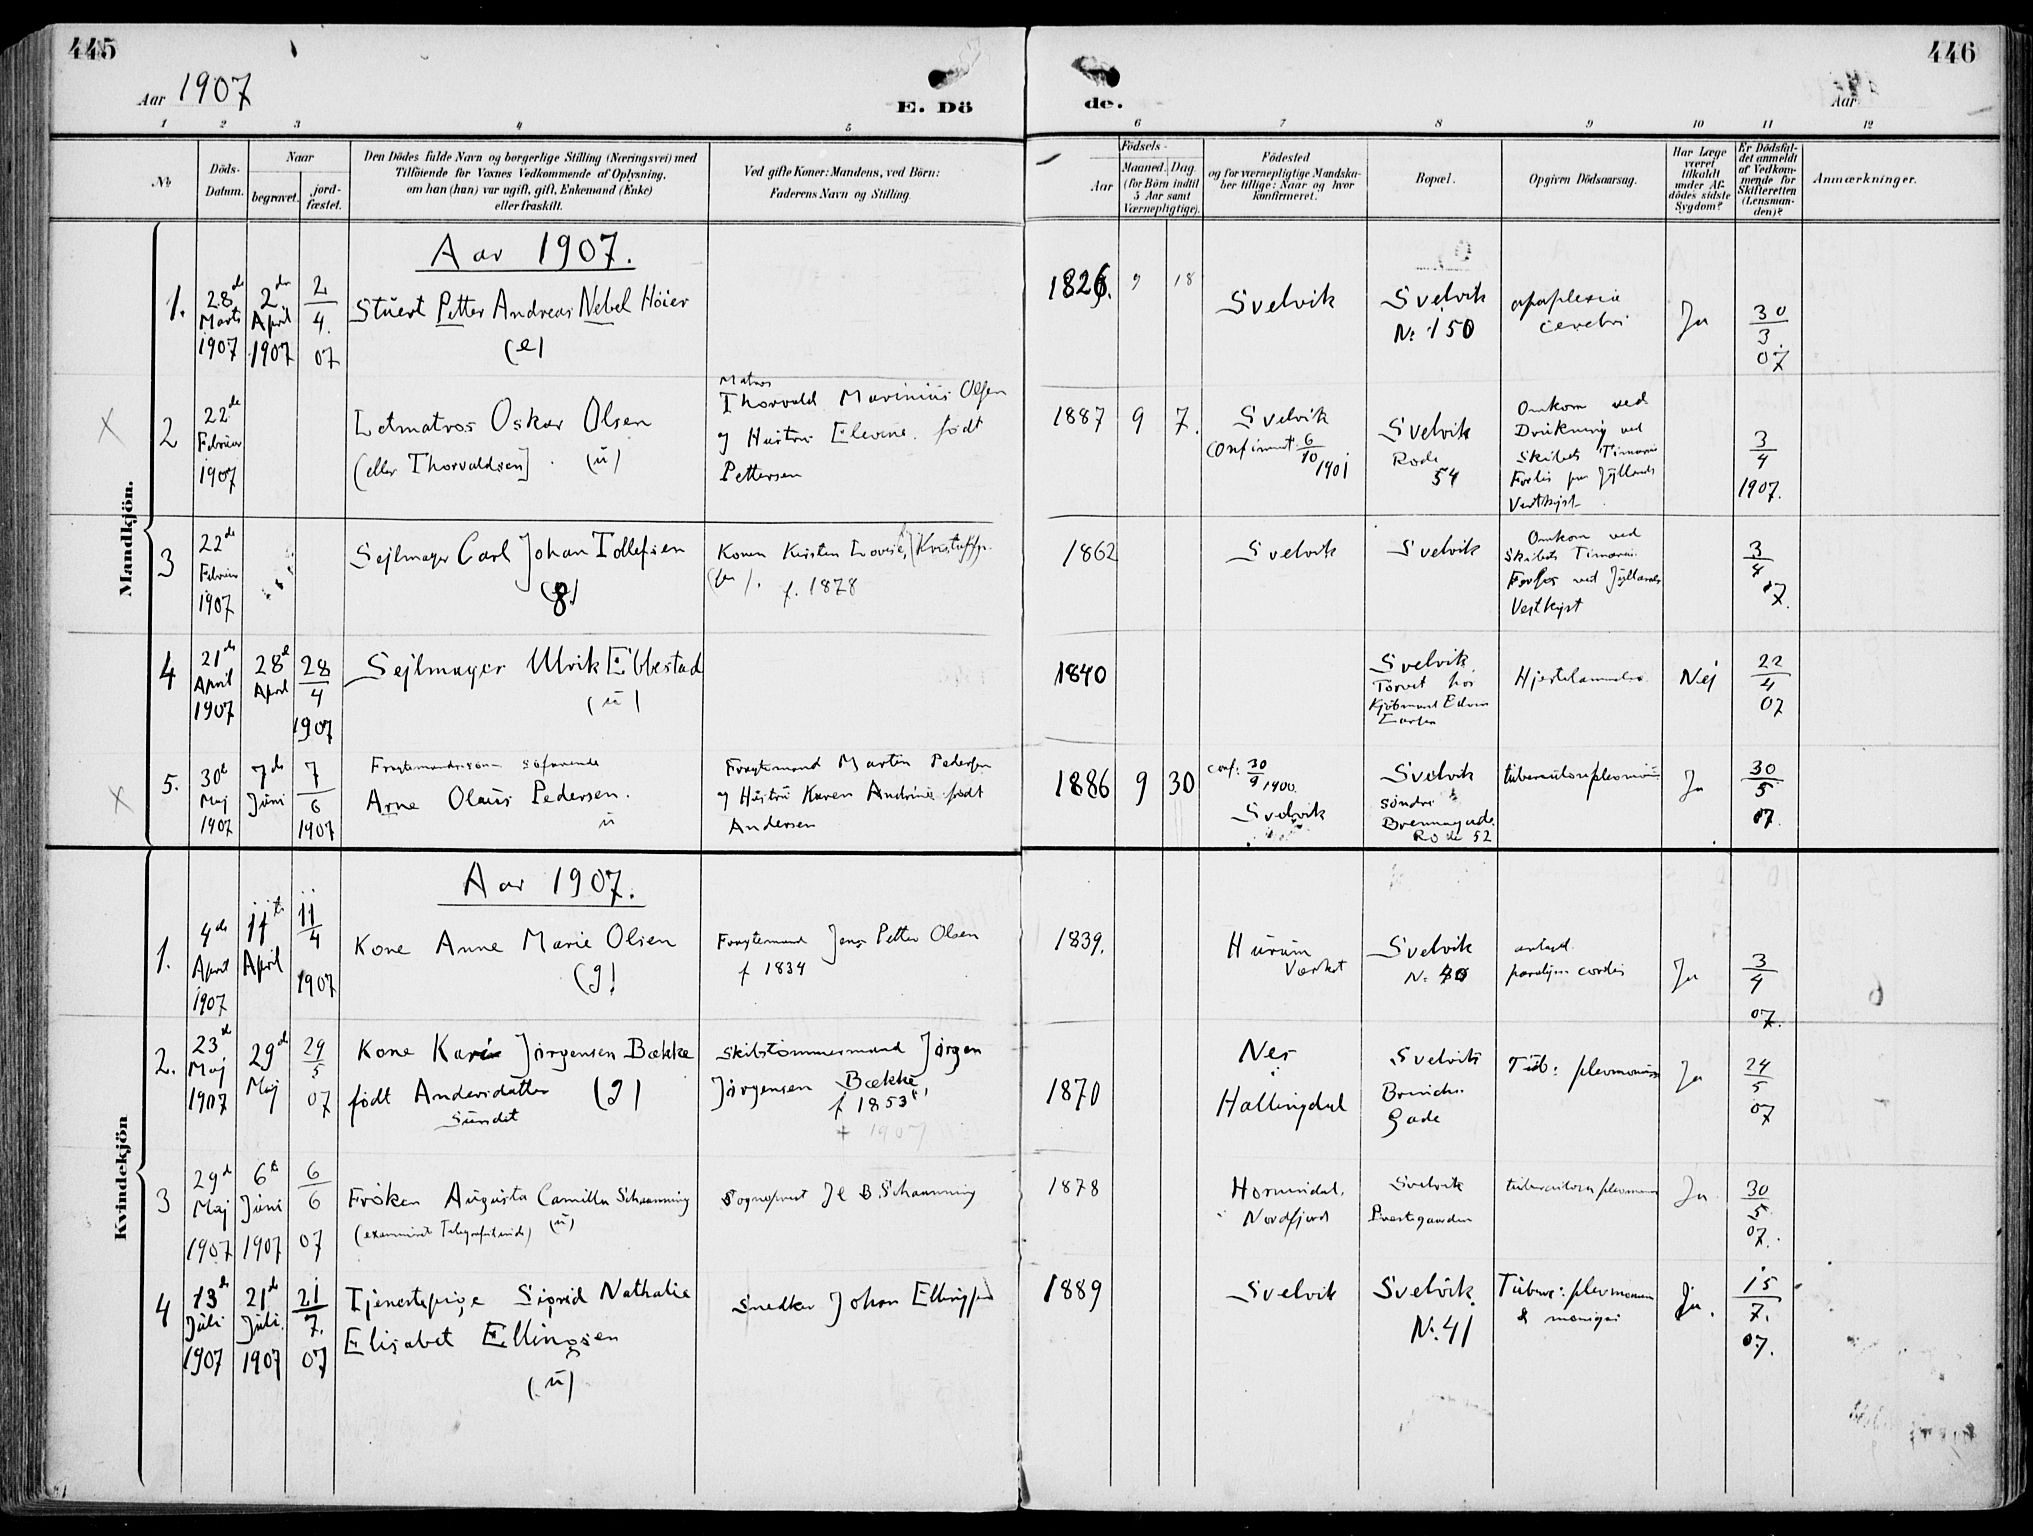 445
446
Aar 1907
E. Dö
de.
Aar
1 2 3 4 5 6 7 8 9 10 11 12
No
Döds-Datum.
Naar
begravet.
jord-fæstet.
Den Dödes fulde Navn og borgerlige Stilling (Næringsvei) med
Tilföiende for Voxnes Vedkommende af Oplysning,
om han (hun) var ugift, gift, Enkemand (Enke)
eller fraskilt.
Ved gifte Koner: Mandens, ved Börn:
Faderens Navn og Stilling.
Födsels-
Aar
Maaned.
Dag.
(for Börn indtil
5 Aar samt
Værnepligtige).
Födested
og for værnepligtige Mandska-
ber tillige: Naar og hvor
konfirmeret.
Bopæl.
Opgiven Dödsaarsag.
Har Læge
været
tilkaldt
under Af-
dödes sidste
Sygdom?
Er Dödsfal-
det anmeldt
af Vedkom-
mende for
Skifteretten
(Lensman-
den)?
Anmærkninger.
Mandkjön.
Aar 1907.
1.
28de
Marts
1907
2den
April
1907
2/4.
07
Stuert Petter Andreas Nebel Höier
(e)
1826.
9
18
Svelvik
Svelvik
No 150
apoplexia
cerebri
Ja
30/3.
07
2
22de
Februar
1907
Letmatros Oskar Olsen
(eller Thorvaldsen). (u)
Matros
Thorvald Marinius Olsen
og Hustru Elevine født
Pettersen
1887
9
7.
Svelvik
Confirmert 6/10
1901
Svelvik
Rode
54
Omkom ved
Drukning ved
Skibets
Forlis paa Jyllands
Vestkyst
3/4
1907.
3
22de
Februar
1907
Sejlmager Carl Johan Tollefsen
(g)
Konen Kirsten Lovise,
f. 1878
1862
Svelvik
Svelvik
Omkom ved
Skibets
Forlis ved Jyllands
Vestkyst
3/4
07.
4
21de
April
1907
28de
April
28/4
1907
Sejlmager Ulrik Ebbestad
(u)
1840
Svelvik
Torvet hos
Kjøbmand Edvin
Larsen
Hjertelammelse
Nej
22/4
07
5.
30te
Maj
1907
7de
Juni
7/6
1907
Fragtemandssøn søfarende
Arne Olaus Pedersen.
u
Fragtemand Martin Pedersen
og Hustru Karen Andrine født
Andersen
1886
9
30
conf: 30/9 1900
Svelvik
Svelvik
søndre
Brennagade.
Rode 52
tuberculose pleomoni
Ja
30/5
07.
Kvindekjön
Aar 1907.
1.
4de
April
1907
11te
April
11/4
1907
Kone Anne Marie Olsen
(g)
Fragtemand Jens Petter Olsen
f 1834
1839.
Hurum
Verket
Svelvik
No 40
paralysis cordis
Ja
3/4
07.
2.
23de
Maj
1907
29de
Maj
29/5
07
Kone Kari Jörgensen Bække
født Andersdatter (g)
Sundet
Skibstömmermand Jörgen
Jörgensen Bække,
f 1853
+ 1907
1870
Nes
Hallingdal
Svelvik
Gade
Tub: pleumonum
Ja
24/5
07
3
29de
Maj
1907
6te
Juni
1907
6/6
07
Fröken Augusta Camilla Schaanning
(examineret Telegrafistinde) (u)
Sogneprest H B Schaanning
1878
Hornindal,
Nordfjord
Svelvik
Prestegaarden
tuberculosis pleumonum
Ja
30/5
07.
4
13de
Juli
1907
21de
Juli.
1907
21/7.
07
Tjenestepige Sigrid Nathalie
Elisabet Ellingsen
(u)
Snedker Johan Ellingsen
1889
Svelvik
Svelvik.
No. 41
Tuberc: pleumonum
& meninges
Ja.
15/7.
07.